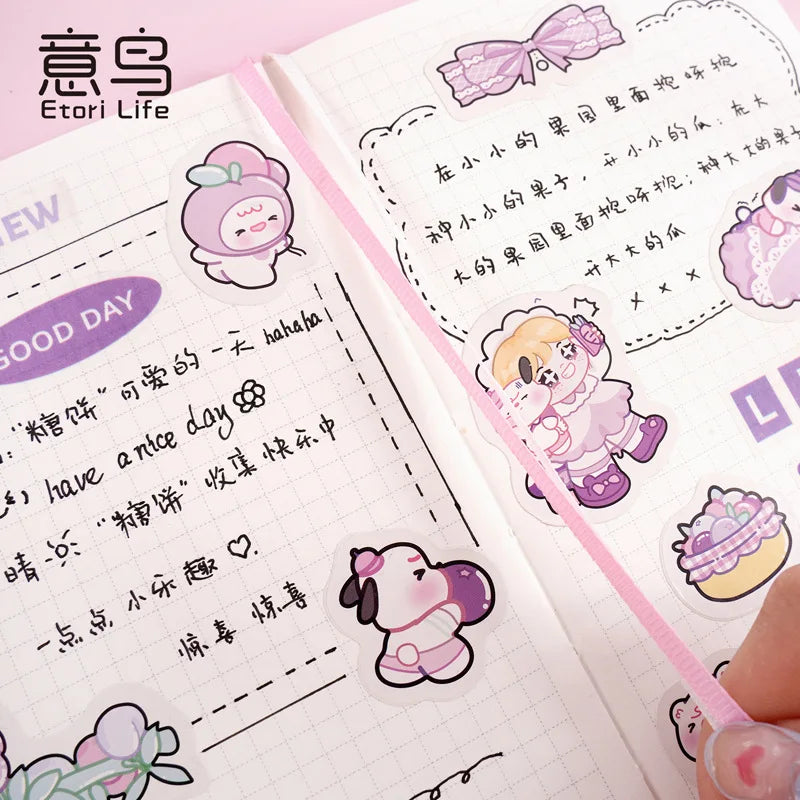 意鸟
Etori Life
IEW
GOOD DAY
"糖饼"可爱的一天 hahaha
have a nice day
晴 "糖饼"收集快乐中
一点点小乐趣
惊喜 惊喜
在小小的果园里面挖呀挖
种小小的果子，开小小的瓜；在大
大的果园里面挖呀挖；种大大的果子
开大大的瓜
× × ×
L